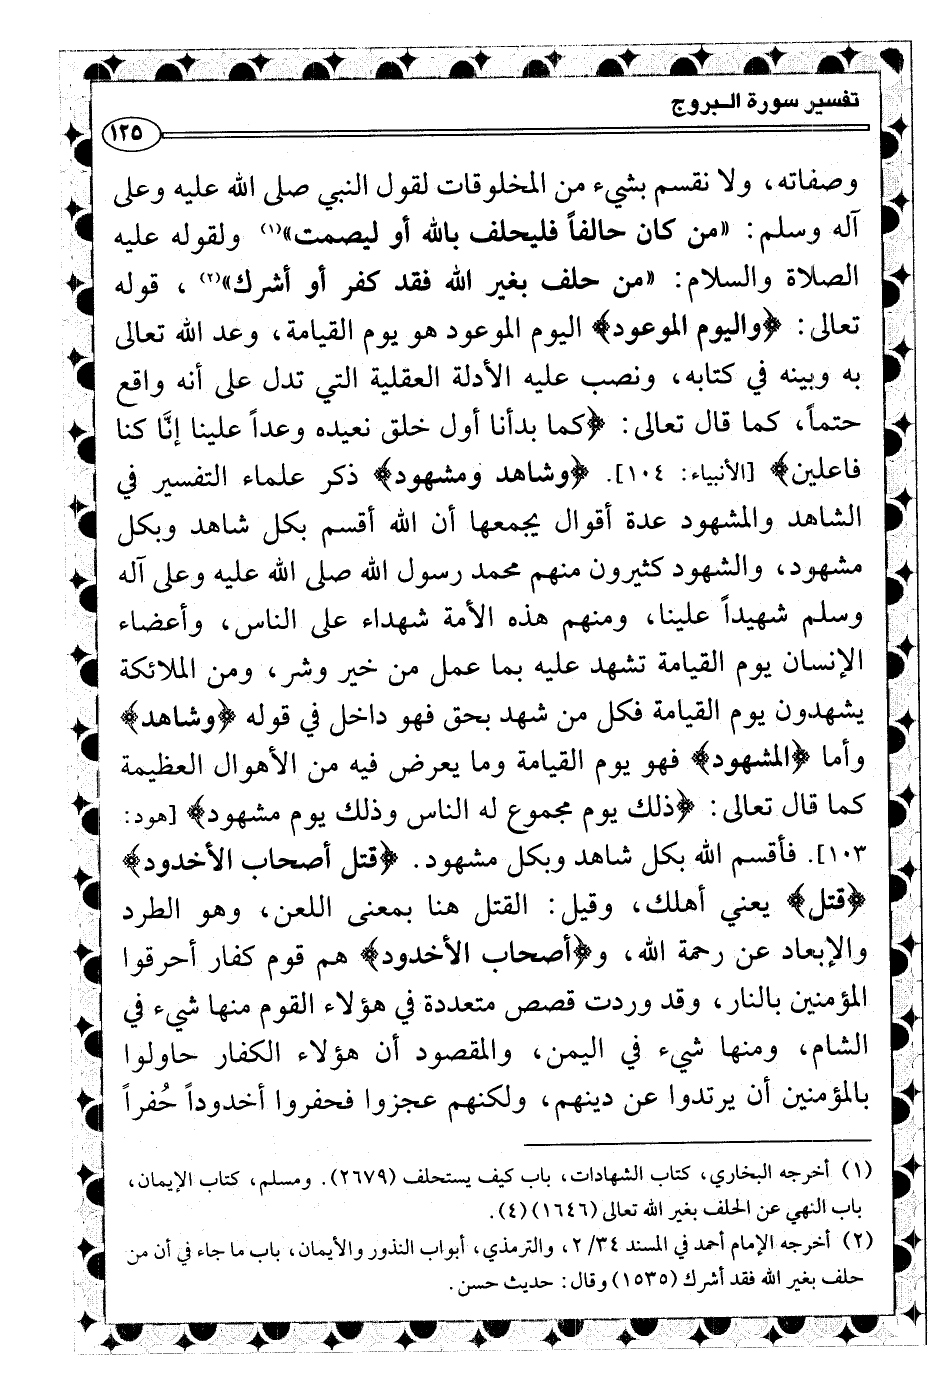 تفسير سورة البروج
١٢٥
وصفاته، ولا نقسم بشيء من المخلوقات لقول النبي صلى الله عليه وعلى
آله وسلم: «من كان حالفاً فليحلف بالله أو ليصمت»(١) ولقوله عليه
الصلاة والسلام: «من حلف بغير الله فقد كفر أو أشرك»(٢)، قوله
تعالى: ﴿واليوم الموعود﴾ اليوم الموعود هو يوم القيامة، وعد الله تعالى
به وبينه في كتابه، ونصب عليه الأدلة العقلية التي تدل على أنه واقع
حتماً، كما قال تعالى: ﴿كما بدأنا أول خلق نعيده وعداً علينا إنَّا كنا
فاعلين﴾ [الأنبياء: ١٠٤]. ﴿وشاهد ومشهود﴾ ذكر علماء التفسير في
الشاهد والمشهود عدة أقوال يجمعها أن الله أقسم بكل شاهد وبكل
مشهود، والشهود كثيرون منهم محمد رسول الله صلى الله عليه وعلى آله
وسلم شهيداً علينا، ومنهم هذه الأمة شهداء على الناس، وأعضاء
الإنسان يوم القيامة تشهد عليه بما عمل من خير وشر، ومن الملائكة
يشهدون يوم القيامة فكل من شهد بحق فهو داخل في قوله ﴿وشاهد﴾
وأما ﴿المشهود﴾ فهو يوم القيامة وما يعرض فيه من الأهوال العظيمة
كما قال تعالى: ﴿ذلك يوم مجموع له الناس وذلك يوم مشهود﴾ [هود:
١٠٣]. فأقسم الله بكل شاهد وبكل مشهود. ﴿قتل أصحاب الأخدود﴾
﴿قتل﴾ يعني أهلك، وقيل: القتل هنا بمعنى اللعن، وهو الطرد
والإبعاد عن رحمة الله، و﴿أصحاب الأخدود﴾ هم قوم كفار أحرقوا
المؤمنين بالنار، وقد وردت قصص متعددة في هؤلاء القوم منها شيء في
الشام، ومنها شيء في اليمن، والمقصود أن هؤلاء الكفار حاولوا
بالمؤمنين أن يرتدوا عن دينهم، ولكنهم عجزوا فحفروا أخدوداً حُفراً
(١) أخرجه البخاري، كتاب الشهادات، باب كيف يستحلف (٢٦٧٩). ومسلم، كتاب الإيمان،
باب النهي عن الحلف بغير الله تعالى (١٦٤٦) (٤).
(٢) أخرجه الإمام أحمد في المسند ٢/٣٤، والترمذي، أبواب النذور والأيمان، باب ما جاء في أن من
حلف بغير الله فقد أشرك (١٥٣٥) وقال: حديث حسن.